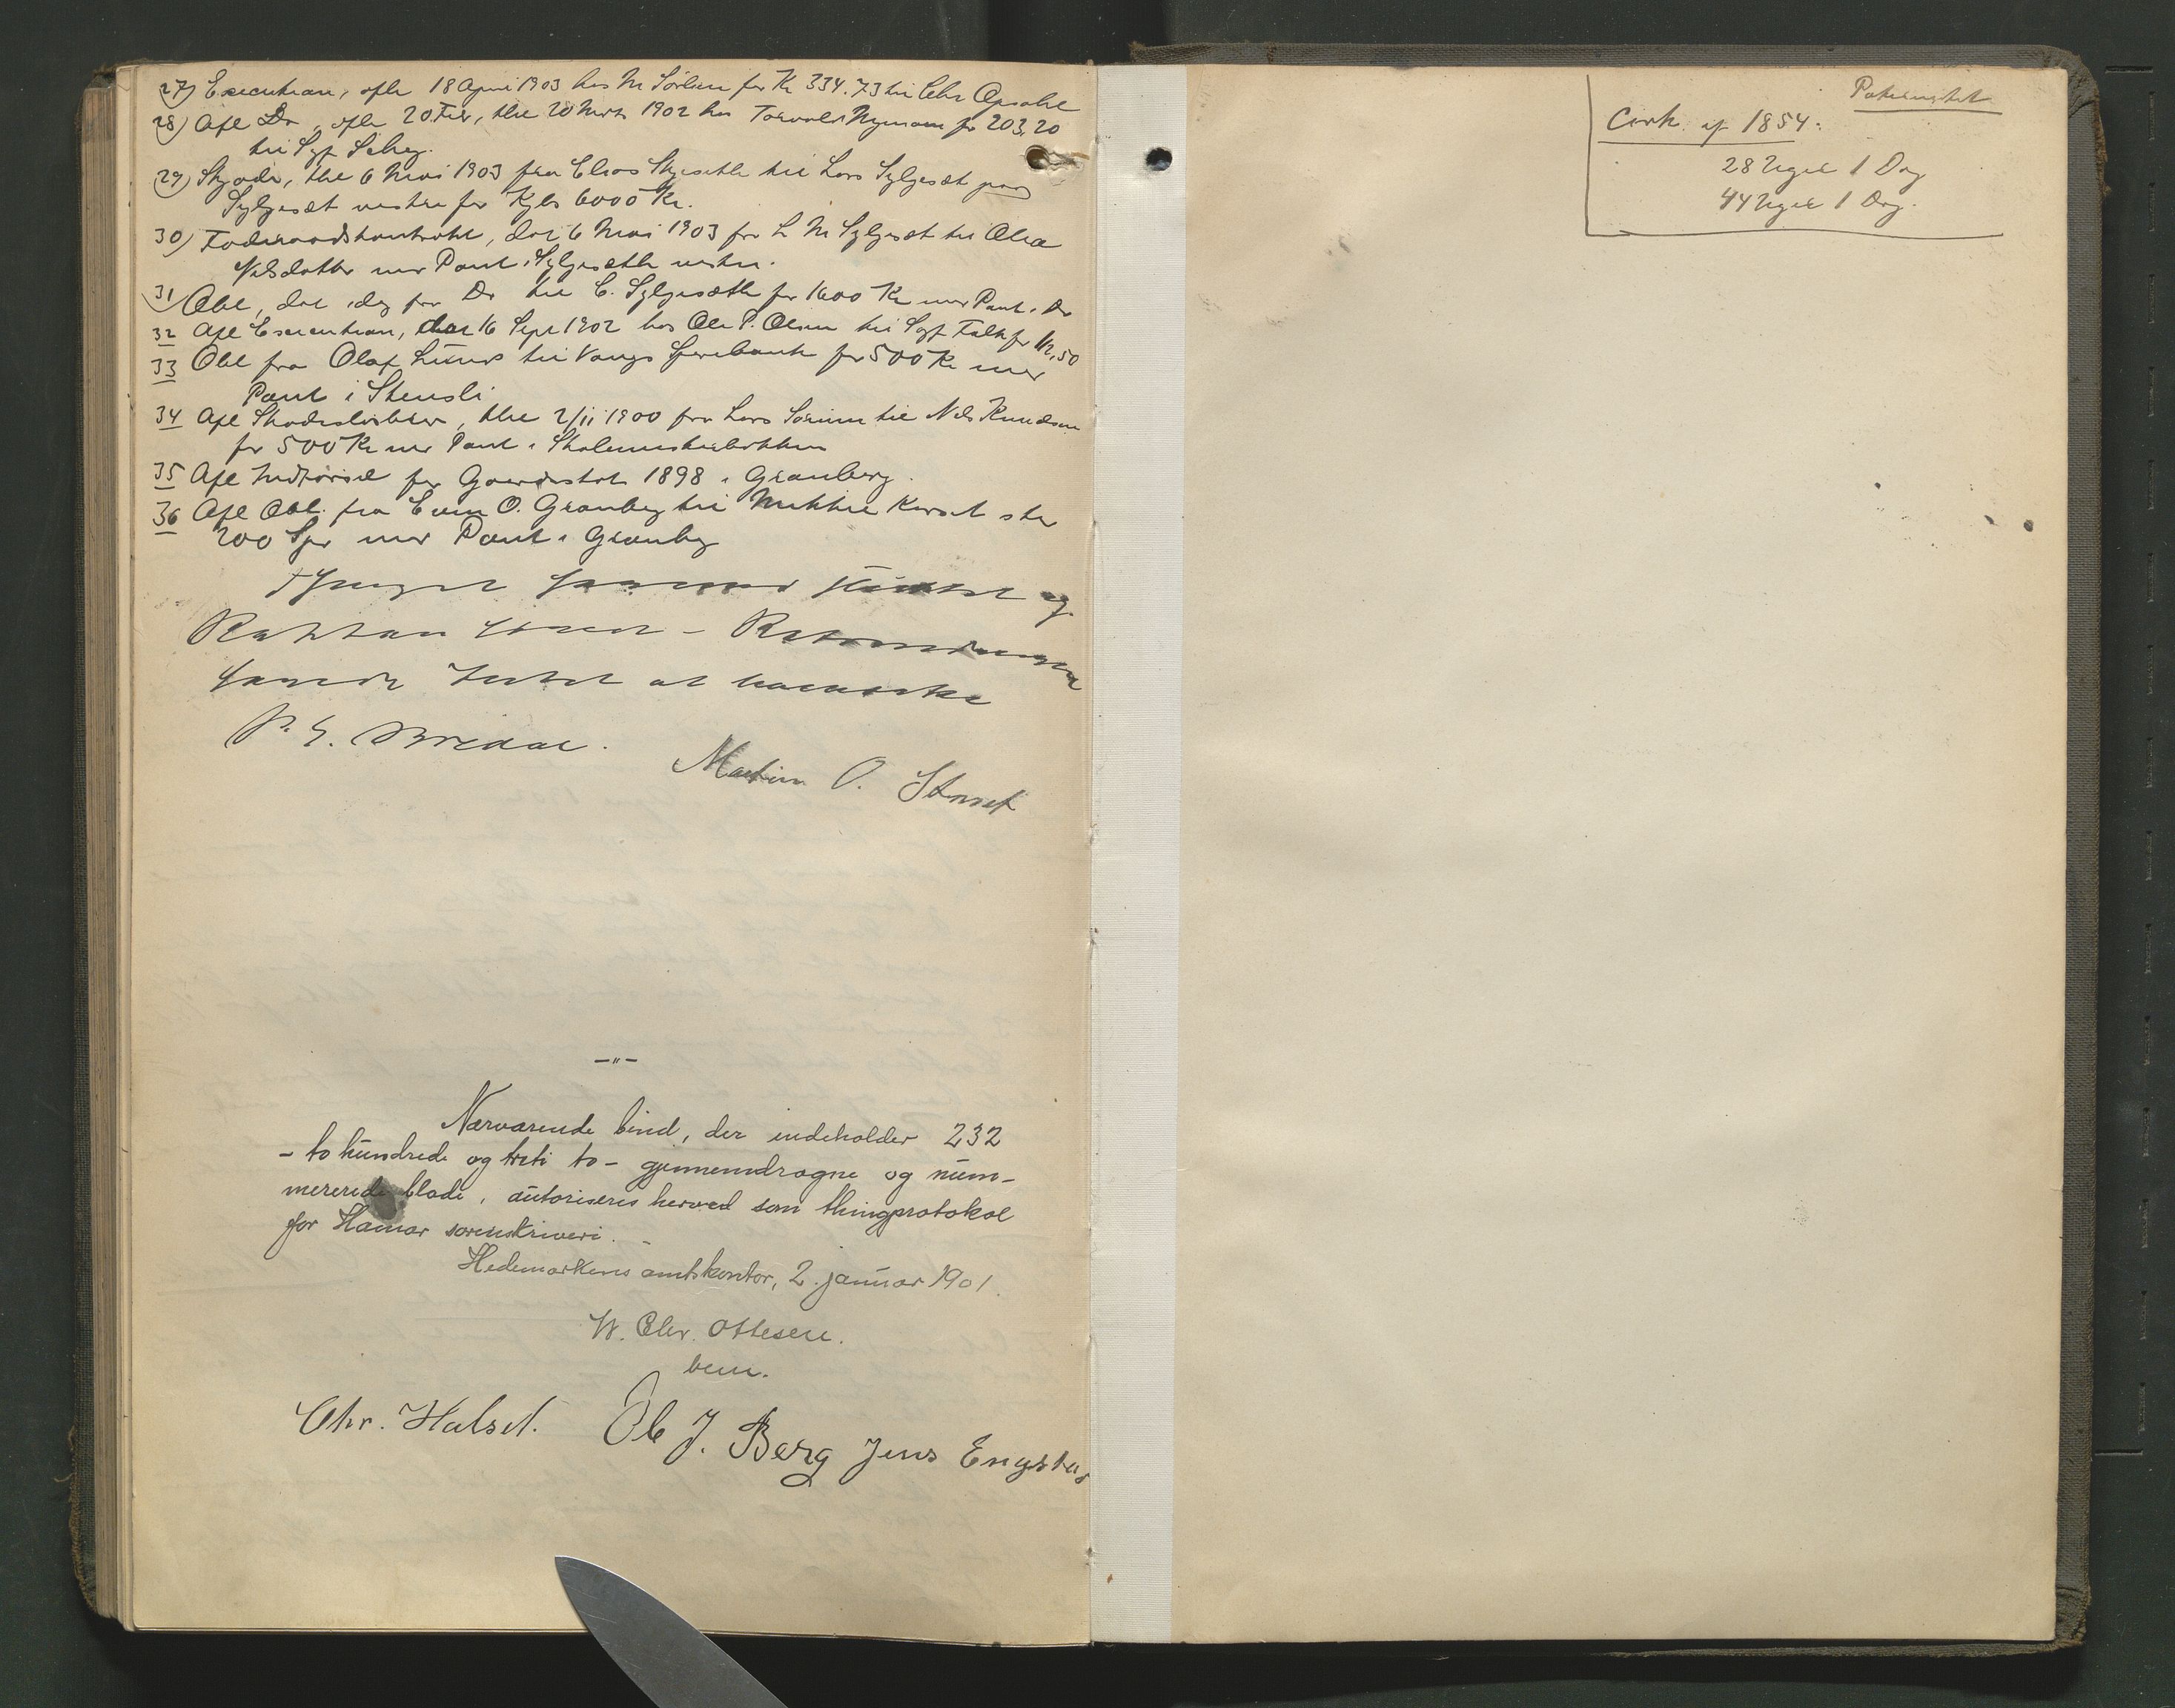 27) Execution, afh 18 April 1903 hos M Sörlien for Kr 334.73 til Chr Opsahl
28) Afl Do, afh 20 Febr, thl 20 Mrts 1902 hos Torvald Nymoen for 203,20
til Sgf Selieg.
29) Skjøde, thl 6 Mai 1903 fra Elias Skjeseth til Lars Syljesæt paa
Syljesæt vestre for Kjbs 6000 Kr.
30) Føderaadskontrakt, dat 6 Mai 1903 fra L M Syljesæt til Olea
Nilsdatter mod Pant i Syljesæth vestre.
31 Obl, dat idag fra Do til E. Syljesæth for 1600 Kr mod Pant i Do
32 Afl Execution, dat 16 Sept 1902 hos Ole P. Olsen til Sgf Falk for 112,50
33 Obl fra Olaf Lunds til Vangs Sparebank for 500 Kr mod
Pant i Stensli
34 Afl Skadesløsbrev, thl 2/11 1900 fra Lars Sörum til Nils Knudsen
for 500 Kr mod Pant i
35 Afl Indförsel for Gaardsskat 1898 i Granberg.
36 Afl Obl. fra Even O. Granberg til Mikkel Korset stor
200 Spd mod Pant i Granberg
og
Retten
P. G. Bredal.
Martin O. Stenset
—"—
Nærværende bind, der indeholder 232
- to hundrede og treti to - gjennemdragne og num-
mererede blade, autoriseres herved som thingprotokol
for Hamar sorenskriveri. -
Hedemarkens amtskontor, 2. januar 1901.
W. Chr. Ottesen.
bem.
Chr. Halset. Ole J. Berg Jens Engstad
Cirk. af 1854:
28 Uger 1 Dag
44 Uger 1 Dag.